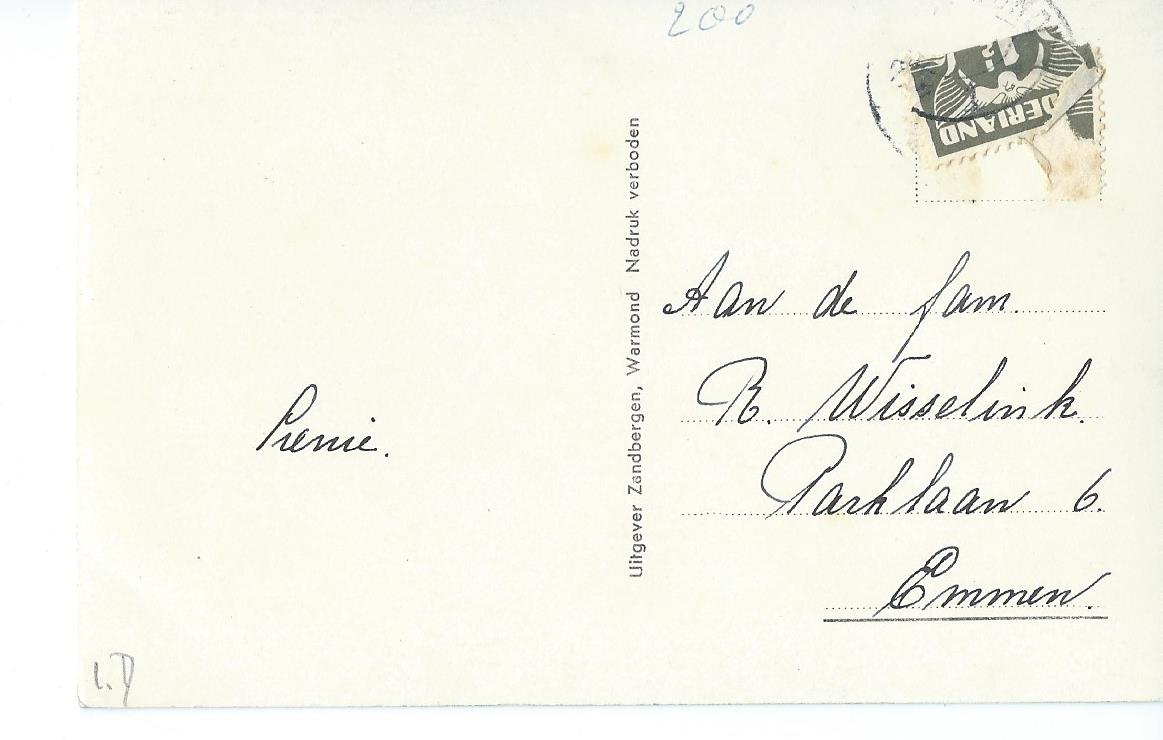 200
DERLAND
Uitgever Zandbergen, Warmond Nadruk verboden
Aan de fam.
R. Wisselink.
Parklaan 6.
Emmen.